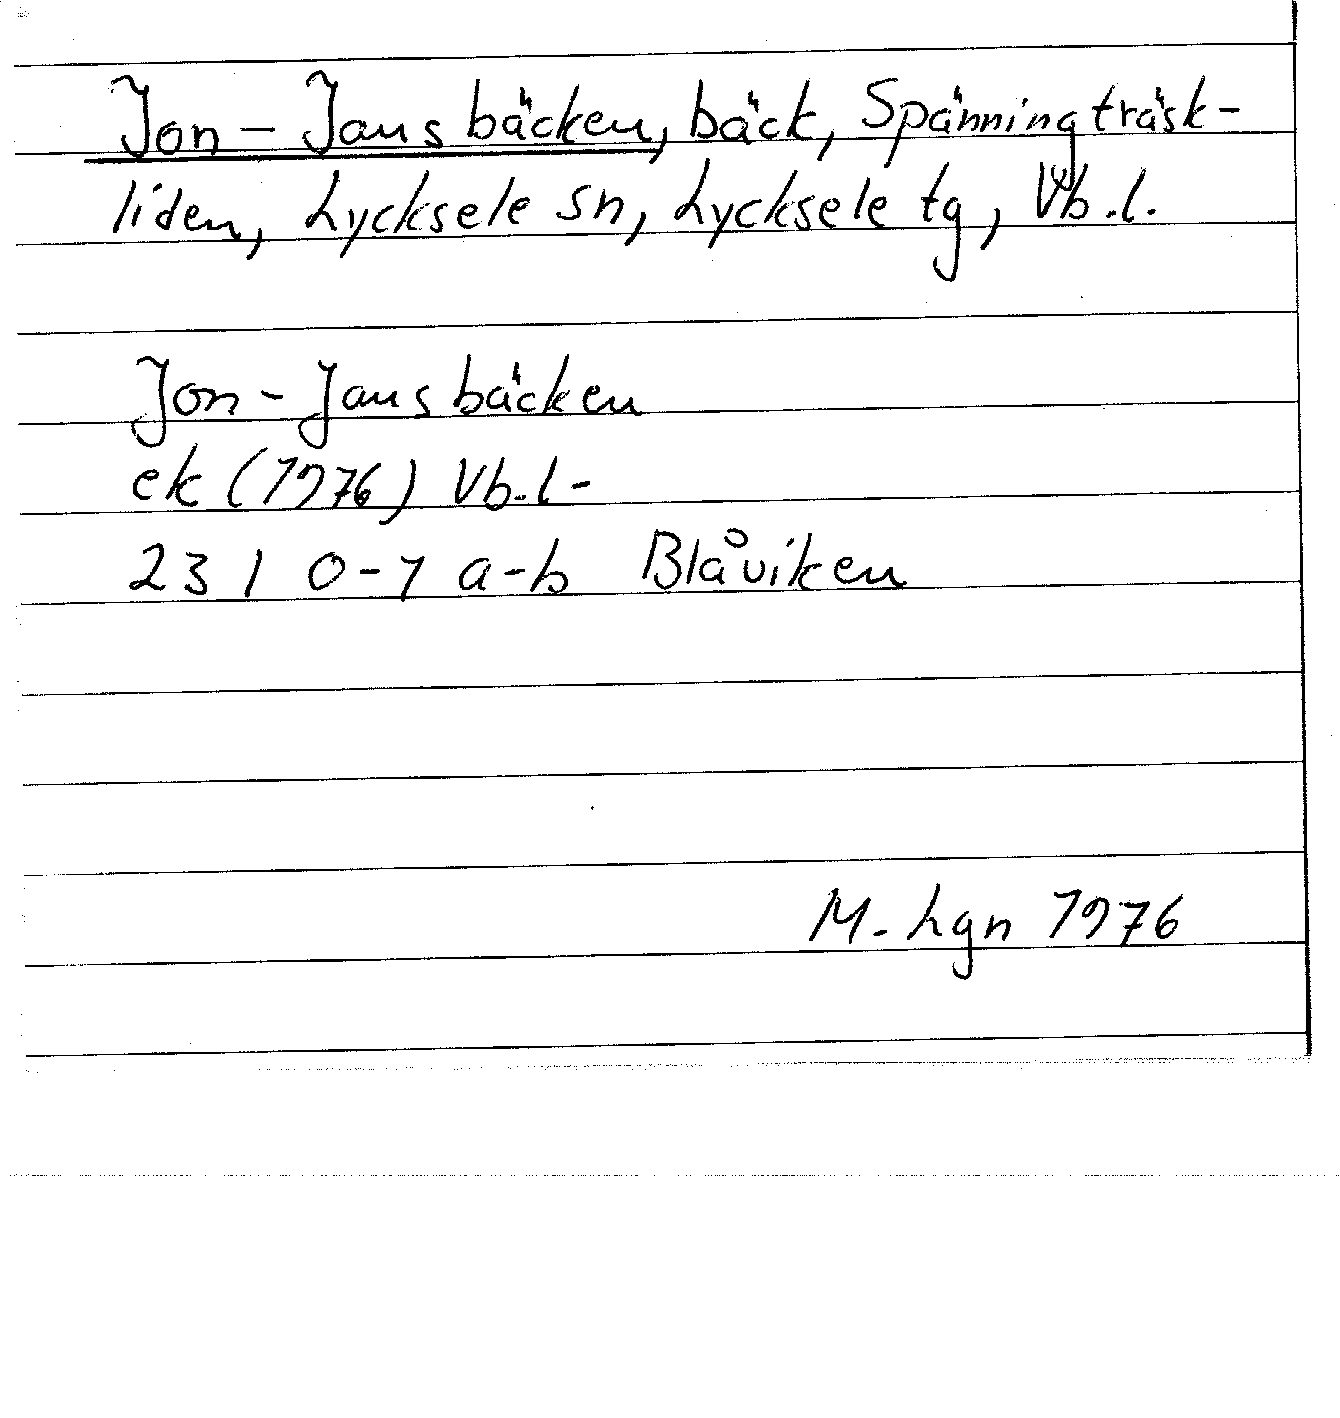 Jon-Jans bäcken, bäck, Spänningträsk-
liden, Lycksele sn, Lycksele tg, Vb.l.
Jon-Jans bäcken
ek (1976) Vb.l-
23 I 0-1 a-b Blåviken
M. Lgn 1976